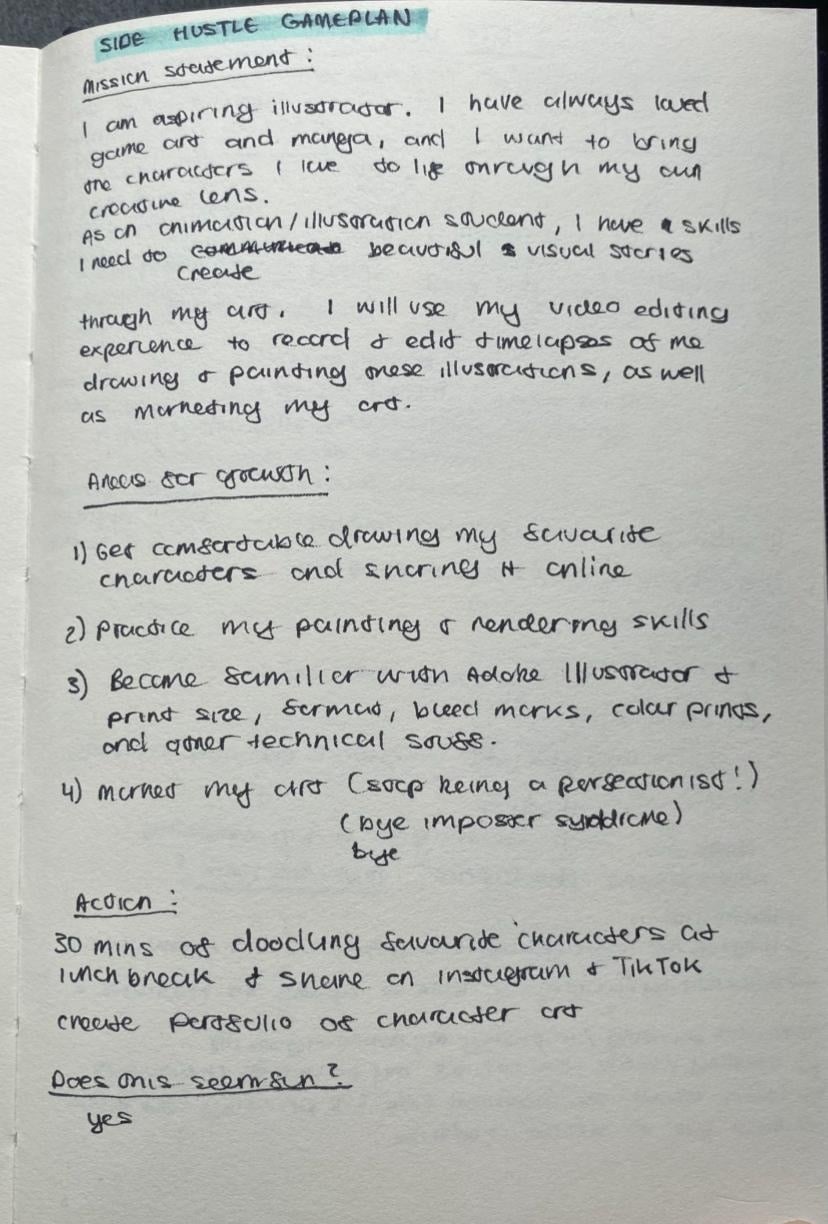 SIDE HUSTLE GAMEPLAN
Mission statement :
I am aspiring illustrator. I have always loved
game art and manga, and I want to bring
the characters I love to life through my own
creative lens.
As an animation/illustration student, I have skills
I need to beautiful visual stories
create
through my art. I will use my video editing
experience to record & edit timelapses of me
drawing & painting these illustrations, as well
as marketing my art.
Areas for growth :
1) Get comfortable drawing my favourite
characters and sharing it online
2) Practice my painting & rendering skills
3) Become familiar with Adobe Illustrator &
print size, format, bleed marks, colour prints,
and other technical stuff.
4) market my art (stop being a perfectionist!)
(bye imposter syndrome)
bye
Action :
30 mins of doodling favourite characters at
lunch break & share on instagram & TikTok
create portfolio of character art
Does this seem fun?
yes